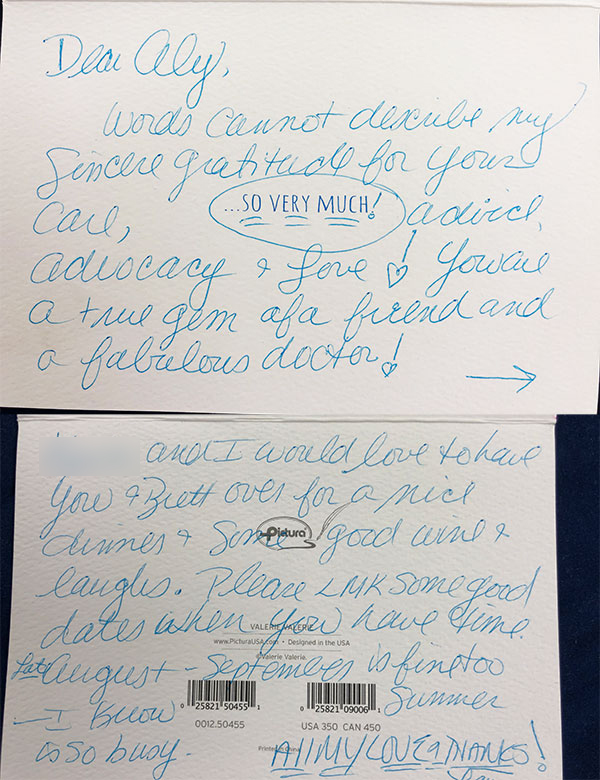 Dear Aly,
Words cannot describe my
sincere gratitude for your
...SO VERY MUCH!
care, advice,
advocacy & love! You are
a true gem of a friend and
a fabulous doctor!
and I would love to have
you & Brett over for a nice
dinner & some good wine &
Pictura
laughs. Please LMK some good
dates when you have time.
VALERIE VALERIE
www.PicturaUSA.com • Designed in the USA
©Valerie Valerie.
Late August - September is fine too
0 25821 50455 1
0 25821 09006 1
— I know Summer
0012.50455
USA 350 CAN 450
is so busy -
Printed in China
All MY LOVE & THANKS!